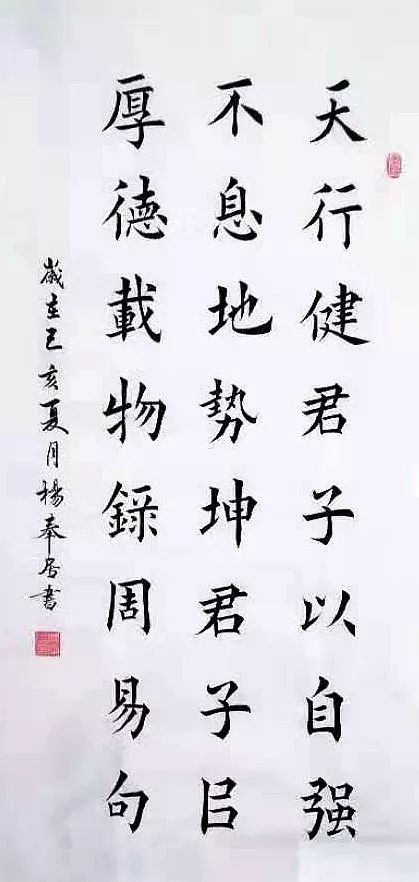 天行健君子以自强
不息地势坤君子㠯
厚德載物錄周易句
歲在己亥夏月楊奉居書